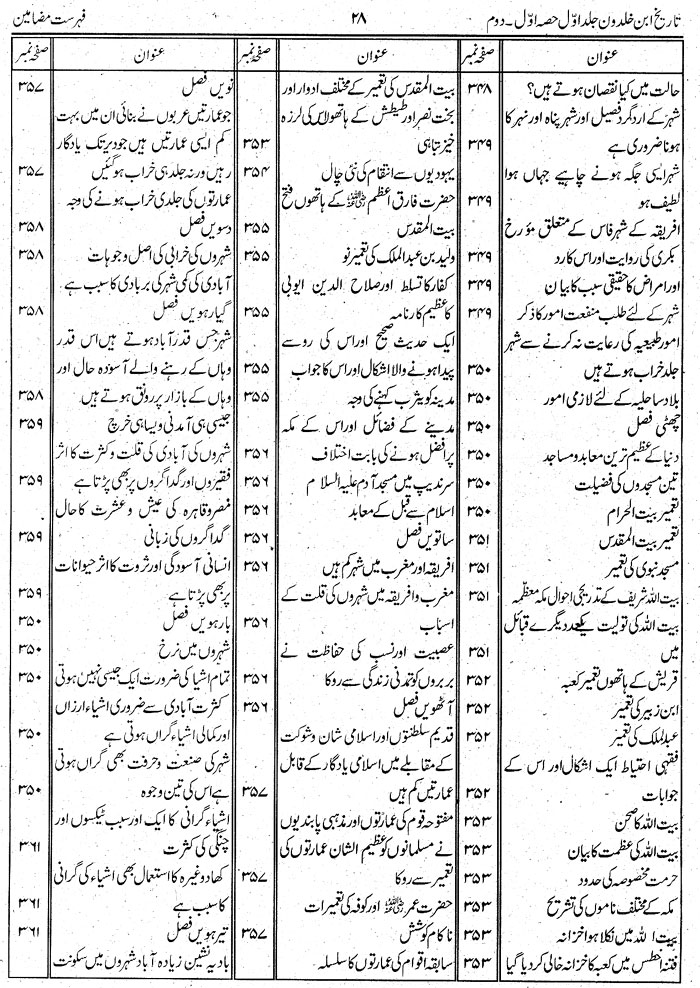 تاریخ ابن خلدون جلد اوّل حصہ اوّل۔ دوم ۲۸ فہرست مضامین
عنوان صفحہ نمبر
حالت میں کیا نقصان ہوتے ہیں؟ ۳۴۸
شہر کے اردگرد فصیل اور شہر پناہ اور نہر کا
ہونا ضروری ہے ۳۴۹
شہر ایسی جگہ ہونے چاہیے جہاں ہوا
لطیف ہو ۳۴۹
افریقہ کے شہر فاس کے متعلق مؤرخ
بکری کی روایت اور اس کا رد ۳۴۹
اور امراض کا حقیقی سبب کا بیان ۳۴۹
شہر کے لئے طلب منفعت امور کا ذکر ۳۴۹
امور طبیعیہ کی رعایت نہ کرنے سے شہر
جلد خراب ہوتے ہیں ۳۵۰
بلاد ساحلیہ کے لئے لازمی امور ۳۵۰
چھٹی فصل ۳۵۰
دنیا کے عظیم ترین معابد و مساجد
تین مسجدوں کی فضیلت ۳۵۰
تعمیر بیت الحرام ۳۵۰
تعمیر بیت المقدس ۳۵۱
مسجد نبوی کی تعمیر ۳۵۱
بیت اللہ شریف کے تدریجی احوال مکہ معظمہ ۳۵۱
بیت اللہ کی تولیت یکے بعد دیگرے قبائل
میں ۳۵۱
قریش کے ہاتھوں تعمیر کعبہ ۳۵۲
ابن زبیر کی تعمیر ۳۵۲
عبدالملک کی تعمیر ۳۵۲
فقہی احتیاط ایک اشکال اور اس کے
جوابات ۳۵۲
بیت اللہ کا صحن ۳۵۳
بیت اللہ کی عظمت کا بیان ۳۵۳
حرمت مخصوصہ کی حدود ۳۵۳
مکہ کے مختلف ناموں کی تشریح ۳۵۳
بیت اللہ میں نکلا ہوا خزانہ ۳۵۳
فتنہ افطس میں کعبہ کا خزانہ خالی کر دیا گیا ۳۵۳
عنوان صفحہ نمبر
بیت المقدس کی تعمیر کے مختلف ادوار اور
بخت نصر اور طیطش کے ہاتھوں اس کی لرزہ
خیز تباہی ۳۵۳
یہودیوں سے انتقام کی نئی چال ۳۵۴
حضرت فارق اعظم رضی اللہ عنہ کے ہاتھوں فتح
بیت المقدس ۳۵۵
ولید بن عبدالملک کی تعمیر نو ۳۵۵
کفار کا تسلط اور صلاح الدین ایوبی
کا عظیم کارنامہ ۳۵۵
ایک حدیث صحیح اور اس کی رو سے
پیدا ہونے والا اشکال اور اس کا جواب ۳۵۵
مدینہ کو یثرب کہنے کی وجہ ۳۵۵
مدینے کے فضائل اور اس کے مکہ
پر افضل ہونے کی بابت اختلاف ۳۵۶
سرندیپ میں مسجد آدم علیہ السلام ۳۵۶
اسلام سے قبل کے معابد ۳۵۶
ساتویں فصل ۳۵۶
افریقہ اور مغرب میں شہر کم ہیں ۳۵۶
مغرب و افریقہ میں شہروں کی قلت کے
اسباب ۳۵۶
عصبیت اور نسب کی حفاظت نے
بربروں کو تمدنی زندگی سے روکا ۳۵۶
آٹھویں فصل ۳۵۶
قدیم سلطنتوں اور اسلامی شان و شوکت
کے مقابلے میں اسلامی یادگار کے قابل
عمارتیں کم ہیں ۳۵۷
مفتوحہ قوم کی عمارتوں اور مذہبی پابندیوں
نے مسلمانوں کو عظیم الشان عمارتوں کی
تعمیر سے روکا ۳۵۷
حضرت عمر رضی اللہ عنہ اور کوفہ کی تعمیرات
نا کام کوشش ۳۵۷
سابقہ اقوام کی عمارتوں کا سلسلہ
عنوان صفحہ نمبر
نویں فصل ۳۵۷
جو عمارتیں عربوں نے بنائی ان میں بہت
کم ایسی عمارتیں ہیں جو دیر تک یادگار
رہیں ورنہ جلد ہی خراب ہو گئیں ۳۵۷
عمارتوں کی جلدی خراب ہونے کی وجہ
دسویں فصل ۳۵۸
شہروں کی خرابی کی اصل وجوہات ۳۵۸
آبادی کی کمی شہر کی بربادی کا سبب ہے
گیارہویں فصل ۳۵۸
شہر جس قدر آباد ہوتے ہیں اس قدر
وہاں کے رہنے والے آسودہ حال اور
وہاں کے بازار پر رونق ہوتے ہیں ۳۵۸
جیسی ہی آمدنی ویسا ہی خرچ ۳۵۹
شہروں کی آبادی کی قلت و کثرت کا اثر
فقیروں اور گداگروں پر بھی پڑتا ہے ۳۵۹
مصر و قاہرہ کی عیش و عشرت کا حال
گداگروں کی زبانی ۳۵۹
انسانی آسودگی اور ثروت کا اثر حیوانات
پر بھی پڑتا ہے ۳۵۹
بارہویں فصل ۳۵۰
شہروں میں نرخ ۳۵۰
تمام اشیا کی ضرورت ایک جیسی نہیں ہوتی ۳۵۰
کثرت آبادی سے ضروری اشیاء ارزاں
اور کمالی اشیاء گراں ہوتی ہے ۳۵۰
شہر کی صنعت و حرفت بھی گراں ہوتی
ہے اس کی تین وجوہ ۳۵۰
اشیاء گرانی کا ایک اور سبب ٹیکسوں اور
چنگی کی کثرت ۳۶۱
کھاد وغیرہ کا استعمال بھی اشیاء کی گرانی
کا سبب ہے ۳۶۱
تیرہویں فصل ۳۶۱
بادیہ نشین زیادہ آباد شہروں میں سکونت